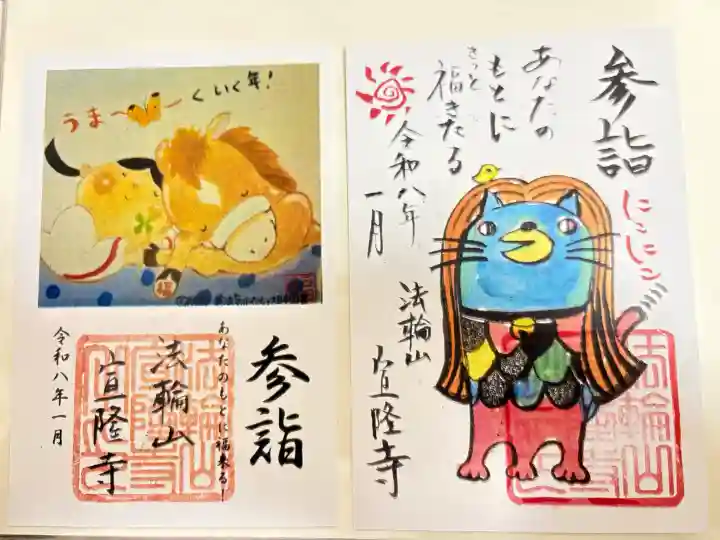 うま〜くいく年!
福
参詣
あなたのもとに福来るー
法輪山
宣隆寺
令和八年一月
参詣
にこにこ
あなたの
もとに
きっと
福きたる
令和八年
一月
法輪山
宣隆寺